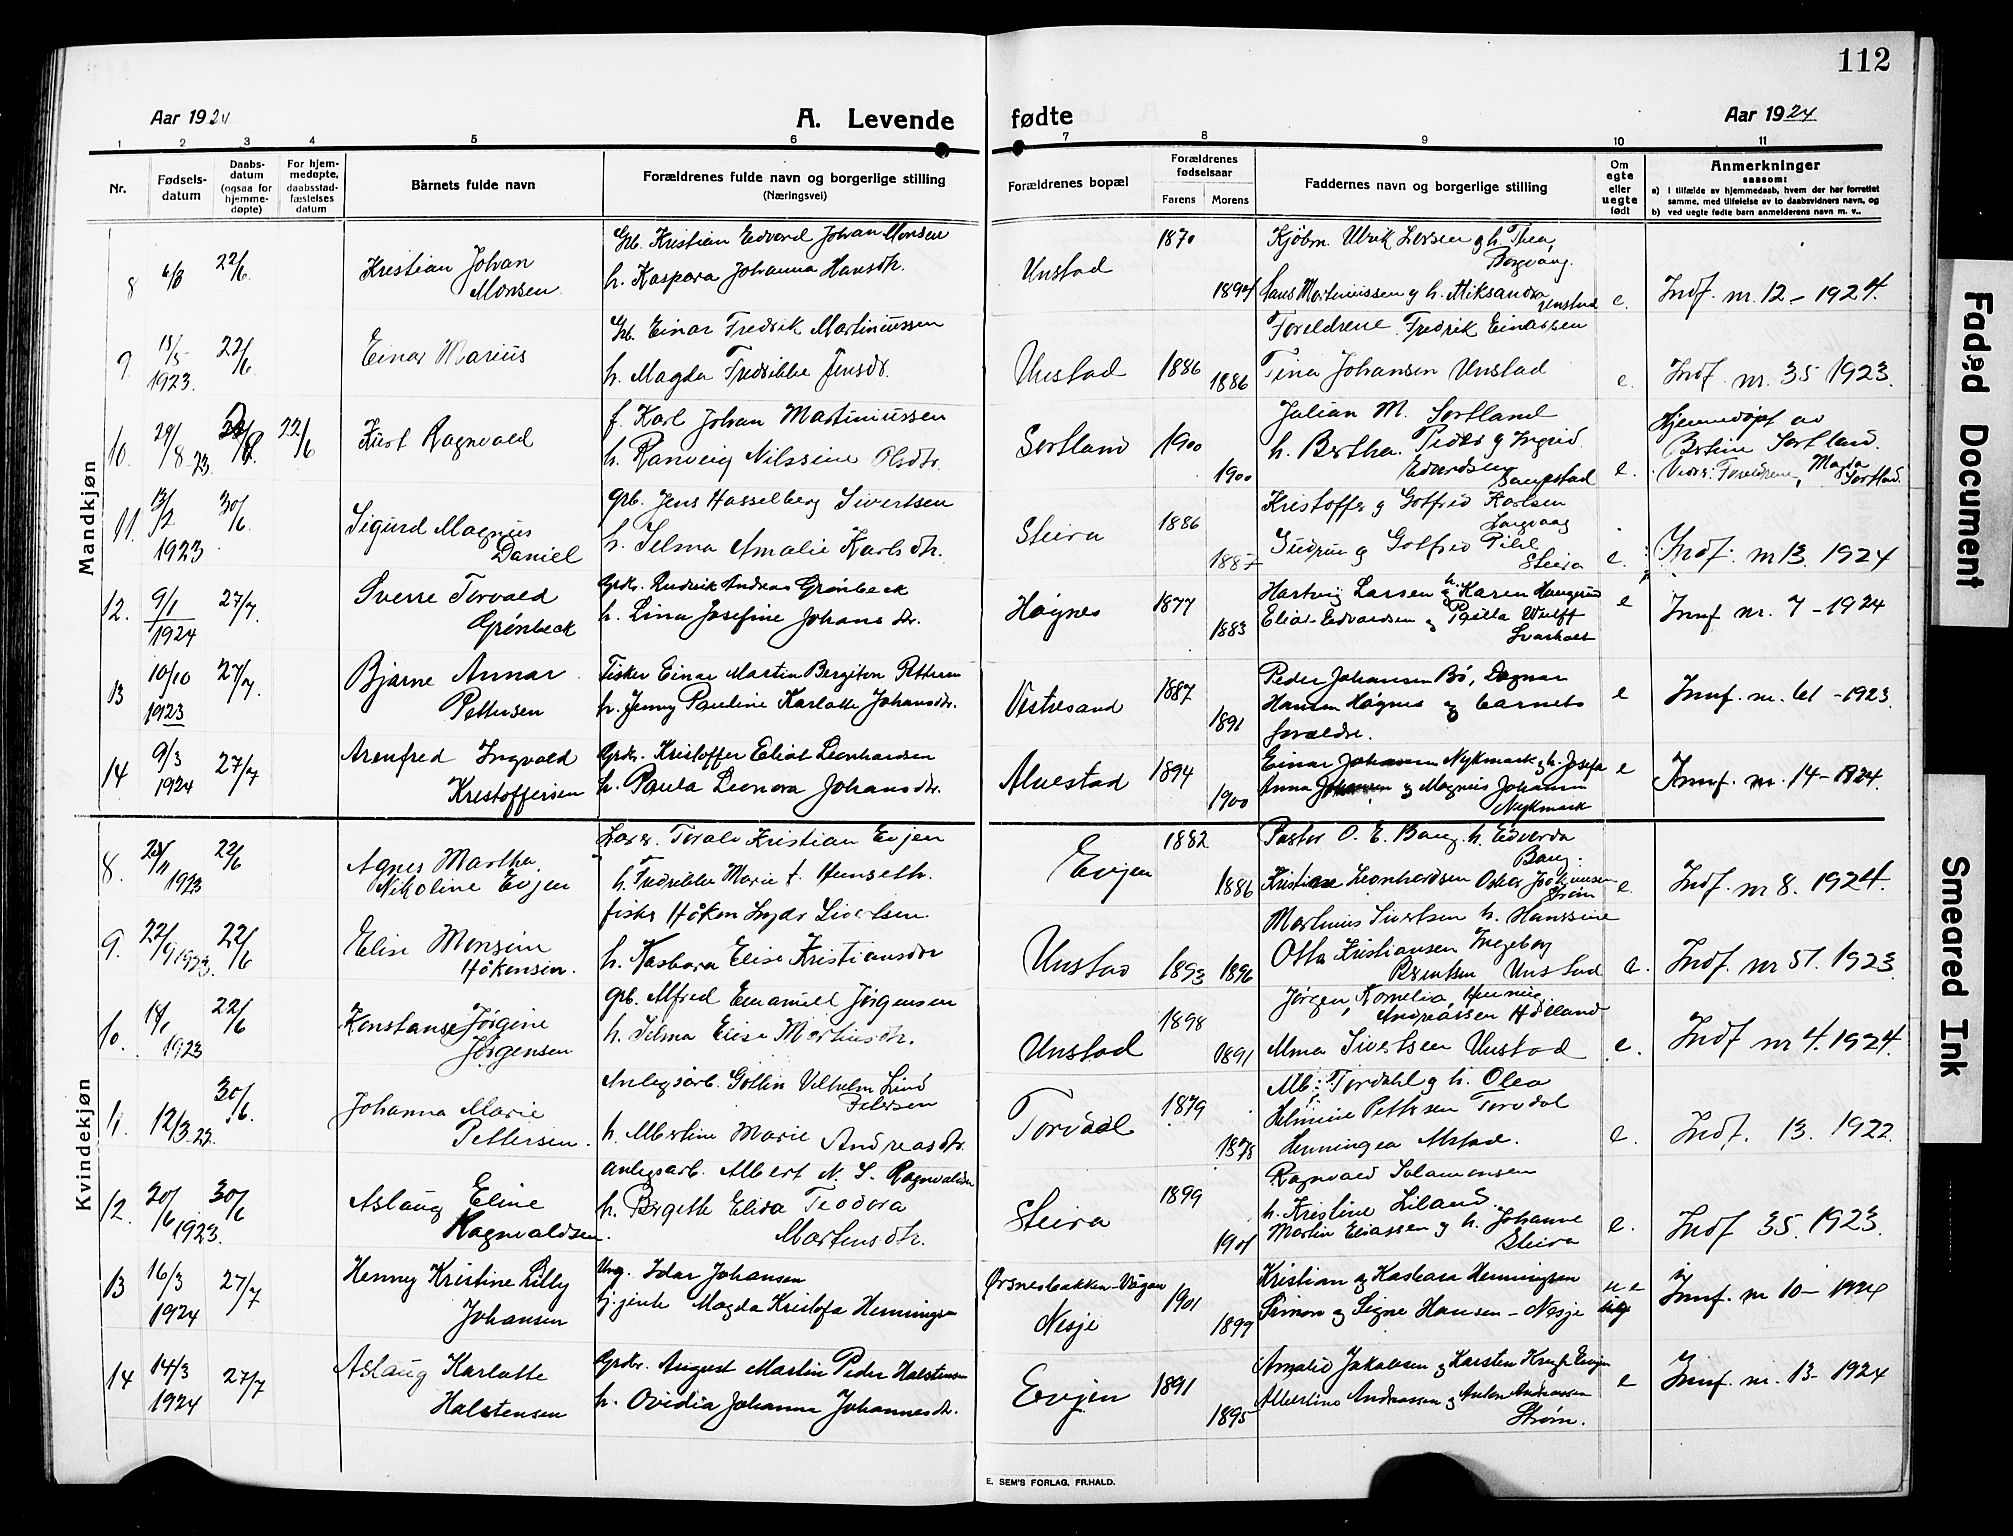 112
Aar 1924
A. Levende
fødte
Aar 1924
1 2 3 4 5 6 7 8 9 10 11
Nr.
Fødsels-
datum
Daabs-
datum
(ogsaa for
hjemme-
døpte)
For hjem-
medøpte,
daabsstad-
fæstelses
datum
Barnets fulde navn
Forældrenes fulde navn og borgerlige stilling
(Næringsvei)
Forældrenes bopæl
Forældrenes
fødselsaar
Farens Morens
Faddernes navn og borgerlige stilling
Om
egte
eller
uegte
født
Anmerkninger
saasom:
a) I tilfælde av hjemmedaab, hvem der har forrettet
samme, med tilføielse av to daabsvidners navn, og
b) ved uegte fødte barn anmelderens navn m. v..
Mandkjøn
8 22/6
Kristian Johan
Monsen
Gb. Kristian Edvard Johan Monsen
h. Kaspara Johanna Hansdtr.
Unstad
1870
1894
Kjøbm. Ulrik Larsen og h. Thea,
Borgvaag.
Hans Martinussen og h. Aliksandra
Unstad
e.
Indf. nr. 12 - 1924.
9 13/5
1923. 22/6.
Einar Marius
Gb. Einar Fredrik Martinussen
h. Magda Fredrikke Jensdtr.
Unstad
1886
1886
Foreldrene. Fredrik Einarssen
Tina Johansen Unstad
e.
Indf. nr. 35 1923.
10. 29/8 23. 22/6
Kurt Ragnvald
f. Karl Johan Martinussen
h. Ranveig Nilssine Olsdtr.
Sortland
1900
1900
Julian M. Sortland
h. Bertha. Peder og Ingrid
Edvardsen
e.
Hjemmedøpt av
Bertine Sortland.
Vidner: Foreldrene, Marta
Sortland.
11. 13/2
1923 30/6.
Sigurd Magnus
Daniel
grb. Jens Hasselberg Sivertsen
h. Selma Amalie Karlsdtr.
Steira
1886
1887
Kristoffer og Gotfred Karlsen
Borgvaag
Gudrun og Gotfred Pihl
Steira
e.
Indf. nr 13. 1924
12. 9/1
1924 27/7.
Sverre Torvald
Grønbeck
Grdbr. Rudrik Andreas Grønbeck
h. Lina Josefine Johansdtr.
Høgnes
1877
1883
Hartvig Larsen og h. Karen Haugerud
Elias Edvardsen og Pailla Wulff
Svarholt
e
Innf. nr. 7 - 1924
13 10/10
1923 27/7.
Bjarne Annar
Pettersen
Fisker Einar Martin Bergiton Pettersen
h. Jenny Pauline Karlotte Johansdtr.
Vestresand
1887
1891
Peder Johansen Bø, Dagmar
Hansen Høgnes og barnets
forældre.
e
Innf. nr. 61 - 1923.
14 9/3
1924 27/7
Arenfred Ingvald
Kristoffersen
Grdbr. Kristoffer Eliot Leonhardsen
h. Paula Leonora Johansdtr.
Alvestad
1894
1900
Einar Johansen Nykmark og h. Josefa
Anna Johansen og Magnus Johansen
Nykmark
e
Innf. nr. 14 - 1924.
Kvindekjøn
8. 1923 22/6
Agnes Martha
Nikoline Evjen
Torald Kristian Evjen
h. Fredrikke Marie f. Hemseth.
Evjen
1882
1886
Pastor O. E. Bang. h. Edvarda
Bang.
Kristiane Leonhardsen Oskar Joakimsen
Strøm
e.
Indf. nr 8. 1924.
9. 22/9 1923. 22/6
Elise Monsine
Håkensen.
fisker Håken Inyder Sivertsen.
h. Kasbara Elise Kristiansdtr
Unstad
1893 1896
Martinus Sivertsen h. Hanssine
Otto Kristiansen Ingeborg
Berntsen Unstad
e.
Indf. nr 51. 1923.
10. 14/1
1923 22/6
Konstanse Jørgine
Jørgensen
gb. Alfred Emanuell Jørgensen
h. Selma Elise Martinsdtr.
Unstad
1898
1891
Jørgen, Kornelia, Henning
Andreassen Hålland
Alma Sivertsen Unstad
e.
Indf nr 4. 1924.
11. 12/3. 23. 30/6.
Johanna Marie
Pettersen.
Anlegsarb. Gottin Vilhelm Lind
Petersen
h. Albertine Marie Andreasdtr.
Torvdal
1879
1878
Alb. Tordahl og h. Olea
Helmine Pettersen Torvdal
Henningea Alstad.
e.
Indf. 13. 1922.
12. 20/6 1923. 30/6
Aslaug Eline
Ragnvaldsen.
Anlegsarb. Albert N. S. Ragnvaldsen
h. Birgitte Elida Teodora
Martinsdtr.
Steira
1899
1901
Ragnvald Salamonsen
h. Kristine Liland.
Martin Eliassen og h. Johanne
Steira
e.
Indf 35. 1923.
13 16/3
1924 27/7
Henny Kristine Lilly
Johansen
Ung. Idar Johansen
tj.jente Magda Kristofa Henningsen
Ørsnesbakken - Vågan
Nesje
1901
1899
Kristian og Kasbara Henningsen
Simon og Signe Hansen - Nesje
ue
Innf. nr 10 - 1924
14 14/3
1924 27/7
Aslaug Karlotte
Halstensen
Grdbr. August Martin Peder Halstensen
h. Ovidia Johanna Johannesdtr.
Evjen
1891
1895
Amalie Jakobsen og Karsten Krogh Evjen
Albertine Andreassen og Anton Andreassen
Strøm.
e
Innf. nr. 13 - 1924
E. SEM'S FORLAG. FR.HALD.
Faded Document
Smeared Ink